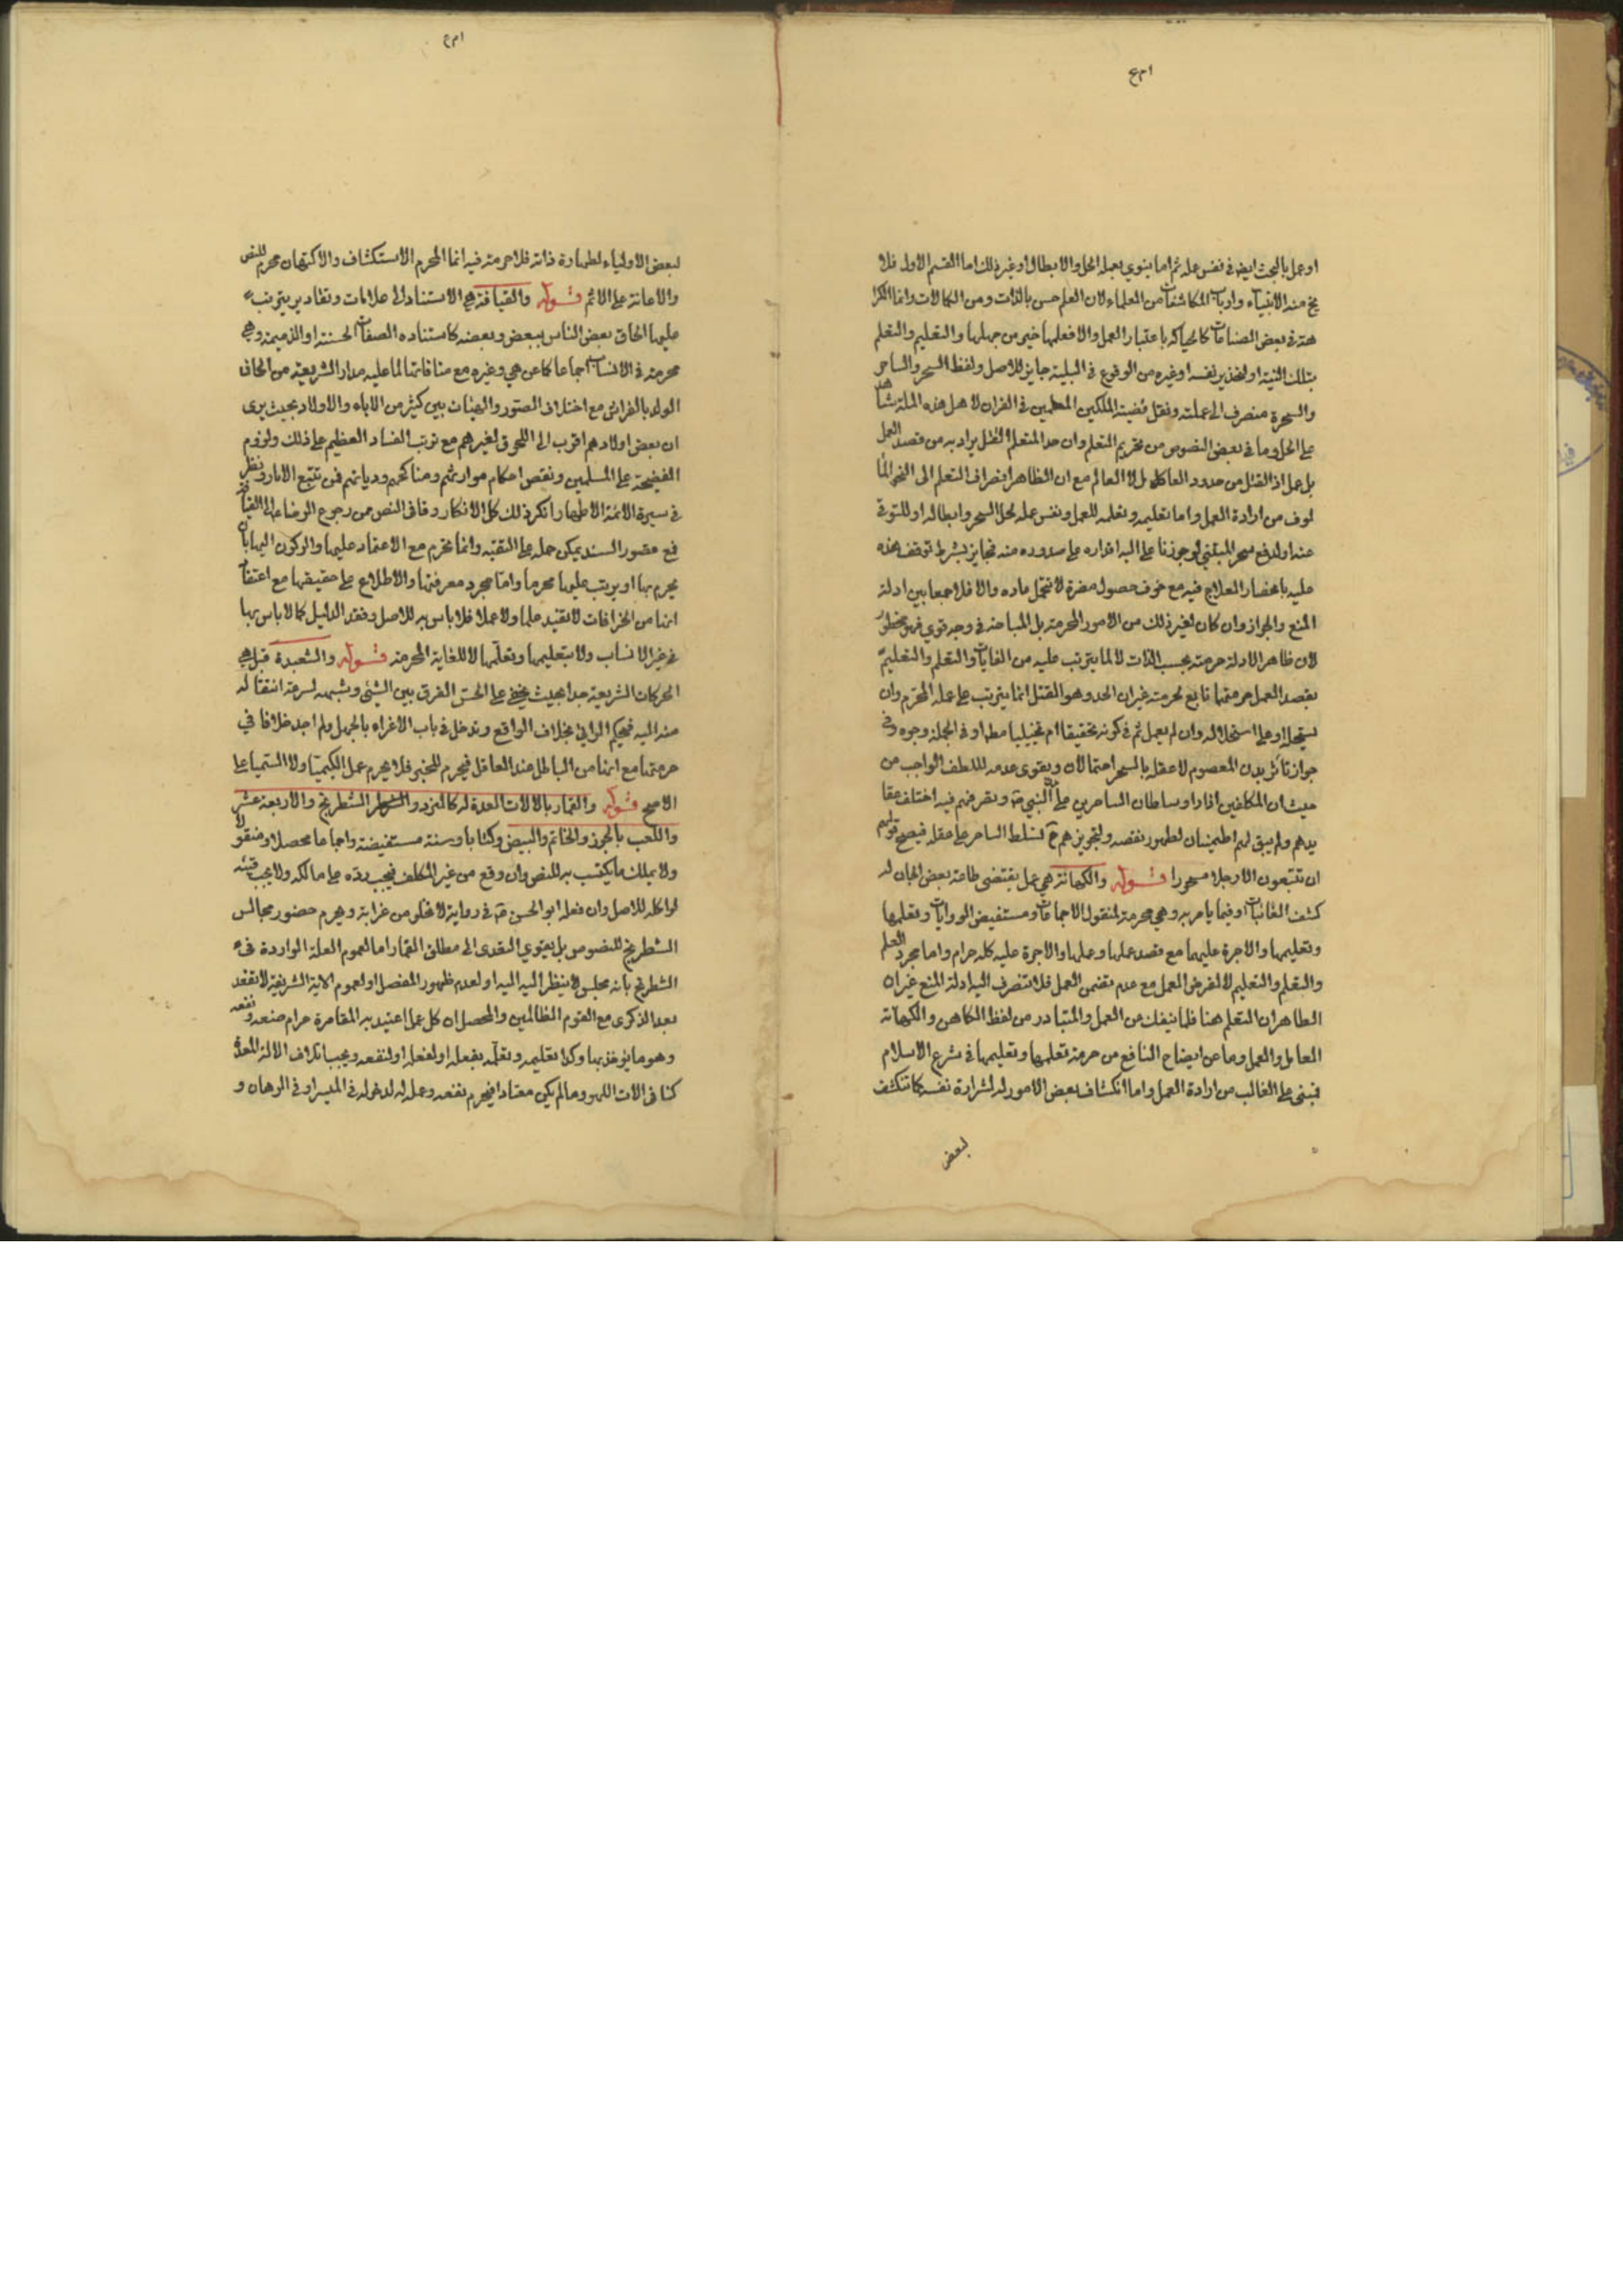 او عمل بالبحث ايض في نفس عمله ثم اما ينوي بعمله الحل والابطال او غير ذلك اما القسم الاول فلا
منه الانبياء وارباب المكاشفات من العلماء لان العلم حسن بالذات ومن الكمالات وانما الكرا
هة في بعض الصناعات كالحياكه باعتبار العمل والا فعلمها خير من جهلها والتعليم والتعلم
بتلك النية او لتحذير نفسه او غيره من الوقوع في البلية جايز للاصل ولفظ السحر والساحر
والسحرة منصرف الى عملته ونقل قضية الملكين المعلمين في القران لاهل هذه الملة شاهد
على الحل وما في بعض النصوص من تحريم التعلم وان حد المتعلم القتل يراد به من قصد العمل
بل عمل اذ القتل من حدود العامل لا العالم مع ان الظاهر انصراف التعلم الى النحو المأ
لوف من ارادة العمل واما تعليمه وتعلمه للعمل ونفس عمله لحل السحر وابطاله او للتوقي
عنه او لدفع سحر المتنبي لو جوزنا على اليه اقداره على صدوره منه فجايز بشرط توقف هذه
عليه بانحصار العلاج فيه مع خوف حصول مضرة لا تتحمل عاده والا فلا جمعا بين ادلة
المنع والجواز وان كان لغير ذلك من الامور المحرمة بل المباحة في وجه قوي فهو محظور
لان ظاهر الادلة حرمته بحسب الذات لا لما يترتب عليه من الغايات والتعلم والتعليم
بقصد العمل حرمتها تابع لحرمته غير ان الحد وهو القتل انما يترتب على عمله المحرم وان
يستحله او على استحلاله وان لم يعمل ثم في كونه تحقيقا ام تخييليا مطلقا او في الجملة وجوه وفي
جواز تاثر بدن المعصوم لا عقله بالسحر احتمالان ويقوى عدمه لللطف الواجب من
حيث ان المكلفين اذا راوا سلطان الساحرين على النبي ص وتصرفهم فيه اختلف عقا
يدهم ولم يبق لهم اطمينان لظهور نقصه ولتجويزهم ح تسلط الساحر على عقله فيصح قولهم
ان تتبعون الا رجلا مسحورا قوله والكهانة هي عمل يقتضي طاعة بعض الجان له
كشف الغائبات او فيما يامر به وهي محرمة لمنقول الاجماعات ومستفيض الروايات وتعلمها
وتعليمها والاجرة عليهما مع قصد عملها وعملها والاجرة عليه كله حرام واما مجرد العلم
والتعلم والتعليم لا لغرض العمل مع عدم تضمن العمل فلا تنصرف اليه ادلة المنع غير ان
الظاهر ان التعلم هنا قلما ينفك من العمل والمتبادر من لفظ الكاهن والكهانة
العامل والعمل وما عن ايضاح النافع من حرمة تعلمها وتعليمها في شرع الاسلام
فبنى على الغالب من ارادة العمل واما انكشاف بعض الامور له لشرارة نفسه كما تنكشف
لبعض
لبعض الاولياء لطهارة ذاته فلا حرمة فيه انما المحرم الاستكشاف والاكتهان محرم للنص
والاعانة على الاثم قوله والقيافة هي الاستناد الى علامات وتقادير يترتب
عليها الحاق بعض الناس ببعض وبعضه كاستناده الصفات الحسنة او الذميمة وهي
محرمة في الانساب اجماعا كما عن هي وغيره مع منافاتها لما عليه مدار الشريعة من الحاق
الولد بالفراش مع اختلاف الصور والهيئات بين كثير من الاباء والاولاد بحيث يرى
ان بعض اولادهم اقرب الى اللحوق لغيرهم مع ترتب الفساد العظيم على ذلك ولزوم
الفضيحة على المسلمين ونقص احكام مواريثهم ومناكحهم ودياتهم فمن تتبع الاثار ونظر
في سيرة الائمة الاطهار انكر ذلك كل الانكار وما في النص من رجوع الرضا ع الى القيافة
فمع قصور السند يمكن حمله على التقيه وانما تحرم مع الاعتماد عليها والركون اليها بان
يجزم بها او يرتب عليها محرما واما مجرد معرفتها والاطلاع على حقيقتها مع اعتقاد
انها من الخرافات لا تفيد علما ولا عملا فلا باس به للاصل وفقد الدليل كما لا باس بها
في غير الانساب ولا بتعليمها وتعلمها لا للغاية المحرمة قوله والشعبدة قيل هي
الحركات السريعة جدا بحيث يخفى على الحس الفرق بين الشئ وشبهه لسرعة انتقاله
منه اليه فيحكم الرائي بخلاف الواقع وتدخل في باب الاغراء بالجهل ولم اجد خلافا في
حرمتها مع انها من الباطل عند العاقل فيحرم للخبر فلا يحرم عمل الكيميا ولا السيميا على
الاصح قوله والقمار بالالات المعدة له كالنرد والشطرنج والاربعة عشر
واللعب بالجوز والخاتم والبيض وكتابا وسنة مستفيضة واجماعا محصلا ومنقولا
ولا يملك ما يكتسب به للنص وان وقع من غير المكلف فيجب رده على مالكه ولا يجب قيئه
لو اكله للاصل وان فعله ابو الحسن ع في رواية لا تخلو من غرابة ويحرم حضور مجالس
الشطرنج للنصوص بل يقوي التعدي الى مطلق القمار اما لعموم العلة الواردة في
الشطرنج بانه مجلس لا ينظر اليه او لعدم ظهور المفصل او لعموم الاية الشريفة لا تقعد
بعد الذكرى مع القوم الظالمين والمحصل ان كل عمل اعتيد به المقامرة حرام صنعه ونفعه
وهو ما يؤخذ بها وكذا تعليمه وتعلمه بفعله او لفعله او لنفعه ويجب اتلاف الالة المعدة
كما في الات اللهو وما لم يكن معتادا فيحرم نفعه وعمله لدخوله في الميسر او في الرهان و